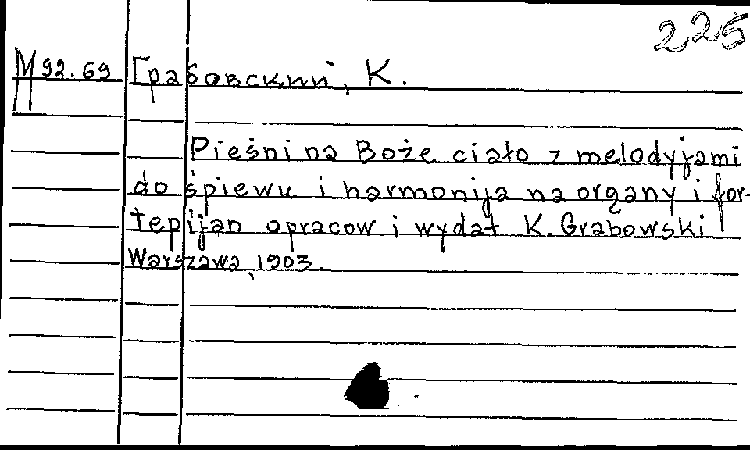 225
М 92.69 Грабовский, К.
Pieśni na Boże ciało z melodyjami
do śpiewu i harmonija na organy i for-
tepijan opracow i wydał K. Grabowski
Warszawa, 1903.